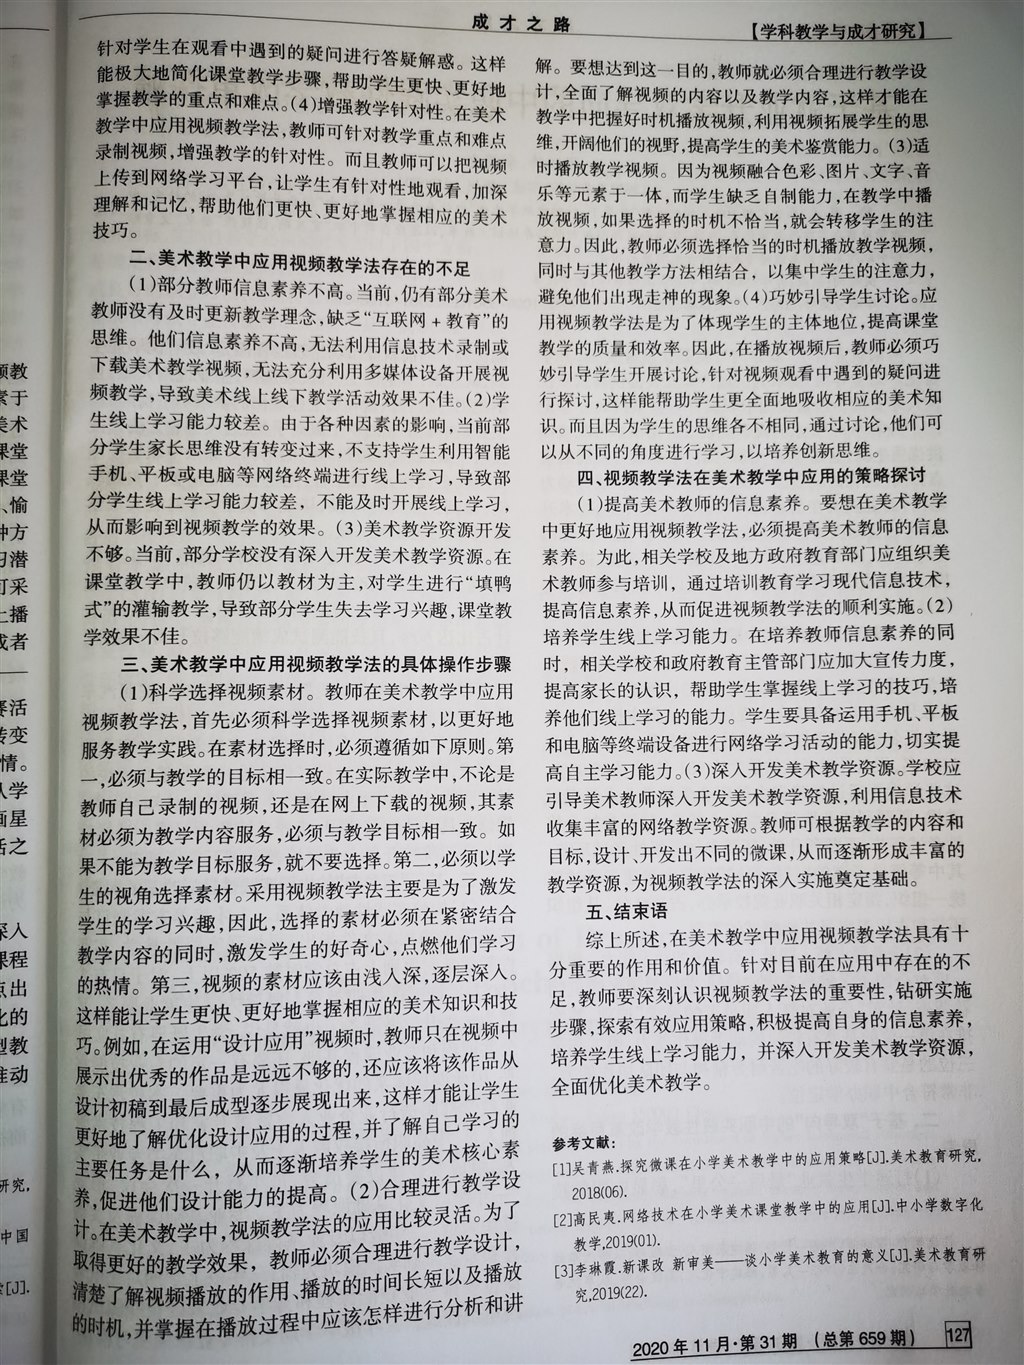 成才之路
【学科教学与成才研究】
针对学生在观看中遇到的疑问进行答疑解惑。这样
能极大地简化课堂教学步骤,帮助学生更快、更好地
掌握教学的重点和难点。(4)增强教学针对性。在美术
教学中应用视频教学法,教师可针对教学重点和难点
录制视频,增强教学的针对性。而且教师可以把视频
上传到网络学习平台,让学生有针对性地观看,加深
理解和记忆,帮助他们更快、更好地掌握相应的美术
技巧。
二、美术教学中应用视频教学法存在的不足
(1)部分教师信息素养不高。当前,仍有部分美术
教师没有及时更新教学理念,缺乏“互联网+教育”的
思维。他们信息素养不高,无法利用信息技术录制或
下载美术教学视频,无法充分利用多媒体设备开展视
频教学,导致美术线上线下教学活动效果不佳。(2)学
生线上学习能力较差。由于各种因素的影响,当前部
分学生家长思维没有转变过来,不支持学生利用智能
手机、平板或电脑等网络终端进行线上学习,导致部
分学生线上学习能力较差,不能及时开展线上学习,
从而影响到视频教学的效果。(3)美术教学资源开发
不够。当前,部分学校没有深入开发美术教学资源。在
课堂教学中,教师仍以教材为主,对学生进行“填鸭
式”的灌输教学,导致部分学生失去学习兴趣,课堂教
学效果不佳。
三、美术教学中应用视频教学法的具体操作步骤
(1)科学选择视频素材。教师在美术教学中应用
视频教学法,首先必须科学选择视频素材,以更好地
服务教学实践。在素材选择时,必须遵循如下原则。第
一,必须与教学的目标相一致。在实际教学中,不论是
教师自己录制的视频,还是在网上下载的视频,其素
材必须为教学内容服务,必须与教学目标相一致。如
果不能为教学目标服务,就不要选择。第二,必须以学
生的视角选择素材。采用视频教学法主要是为了激发
学生的学习兴趣,因此,选择的素材必须在紧密结合
教学内容的同时,激发学生的好奇心,点燃他们学习
的热情。第三,视频的素材应该由浅入深,逐层深入。
这样能让学生更快、更好地掌握相应的美术知识和技
巧。例如,在运用“设计应用”视频时,教师只在视频中
展示出优秀的作品是远远不够的,还应该将该作品从
设计初稿到最后成型逐步展现出来,这样才能让学生
更好地了解优化设计应用的过程,并了解自己学习的
主要任务是什么,从而逐渐培养学生的美术核心素
养,促进他们设计能力的提高。(2)合理进行教学设
计。在美术教学中,视频教学法的应用比较灵活。为了
取得更好的教学效果,教师必须合理进行教学设计,
清楚了解视频播放的作用、播放的时间长短以及播放
的时机,并掌握在播放过程中应该怎样进行分析和讲
解。要想达到这一目的,教师就必须合理进行教学设
计,全面了解视频的内容以及教学内容,这样才能在
教学中把握好时机播放视频,利用视频拓展学生的思
维,开阔他们的视野,提高学生的美术鉴赏能力。(3)适
时播放教学视频。因为视频融合色彩、图片、文字、音
乐等元素于一体,而学生缺乏自制能力,在教学中播
放视频,如果选择的时机不恰当,就会转移学生的注
意力。因此,教师必须选择恰当的时机播放教学视频,
同时与其他教学方法相结合,以集中学生的注意力,
避免他们出现走神的现象。(4)巧妙引导学生讨论。应
用视频教学法是为了体现学生的主体地位,提高课堂
教学的质量和效率。因此,在播放视频后,教师必须巧
妙引导学生开展讨论,针对视频观看中遇到的疑问进
行探讨,这样能帮助学生更全面地吸收相应的美术知
识。而且因为学生的思维各不相同,通过讨论,他们可
以从不同的角度进行学习,以培养创新思维。
四、视频教学法在美术教学中应用的策略探讨
(1)提高美术教师的信息素养。要想在美术教学
中更好地应用视频教学法,必须提高美术教师的信息
素养。为此,相关学校及地方政府教育部门应组织美
术教师参与培训,通过培训教育学习现代信息技术,
提高信息素养,从而促进视频教学法的顺利实施。(2)
培养学生线上学习能力。在培养教师信息素养的同
时,相关学校和政府教育主管部门应加大宣传力度,
提高家长的认识,帮助学生掌握线上学习的技巧,培
养他们线上学习的能力。学生要具备运用手机、平板
和电脑等终端设备进行网络学习活动的能力,切实提
高自主学习能力。(3)深入开发美术教学资源。学校应
引导美术教师深入开发美术教学资源,利用信息技术
收集丰富的网络教学资源。教师可根据教学的内容和
目标,设计、开发出不同的微课,从而逐渐形成丰富的
教学资源,为视频教学法的深入实施奠定基础。
五、结束语
综上所述,在美术教学中应用视频教学法具有十
分重要的作用和价值。针对目前在应用中存在的不
足,教师要深刻认识视频教学法的重要性,钻研实施
步骤,探索有效应用策略,积极提高自身的信息素养,
培养学生线上学习能力,并深入开发美术教学资源,
全面优化美术教学。
参考文献:
[1]吴青燕.探究微课在小学美术教学中的应用策略[J].美术教育研究,
2018(06).
[2]高民夷.网络技术在小学美术课堂教学中的应用[J].中小学数字化
教学,2019(01).
[3]李琳霞.新课改 新审美——谈小学美术教育的意义[J].美术教育研
究,2019(22).
2020年11月·第31期 (总第659期) 127